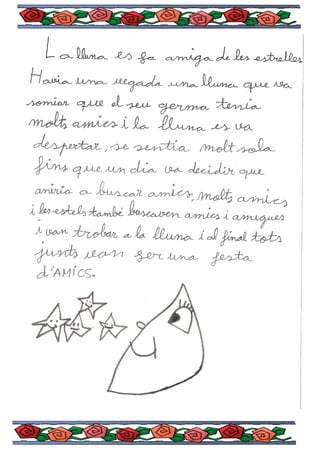 La lluna es fa amiga de les estrelles
Havia una vegada una lluna que va
somiar que el seu germa tenia
molts amics i la lluna es va
despertar, se sentia molt sola
fins que un dia va decidir que
aniria a buscar amics, molts amics
i les estels també buscaven amics i amigues
i van trobar a la lluna i al final tots
junts van fer una festa
d'AMICS.